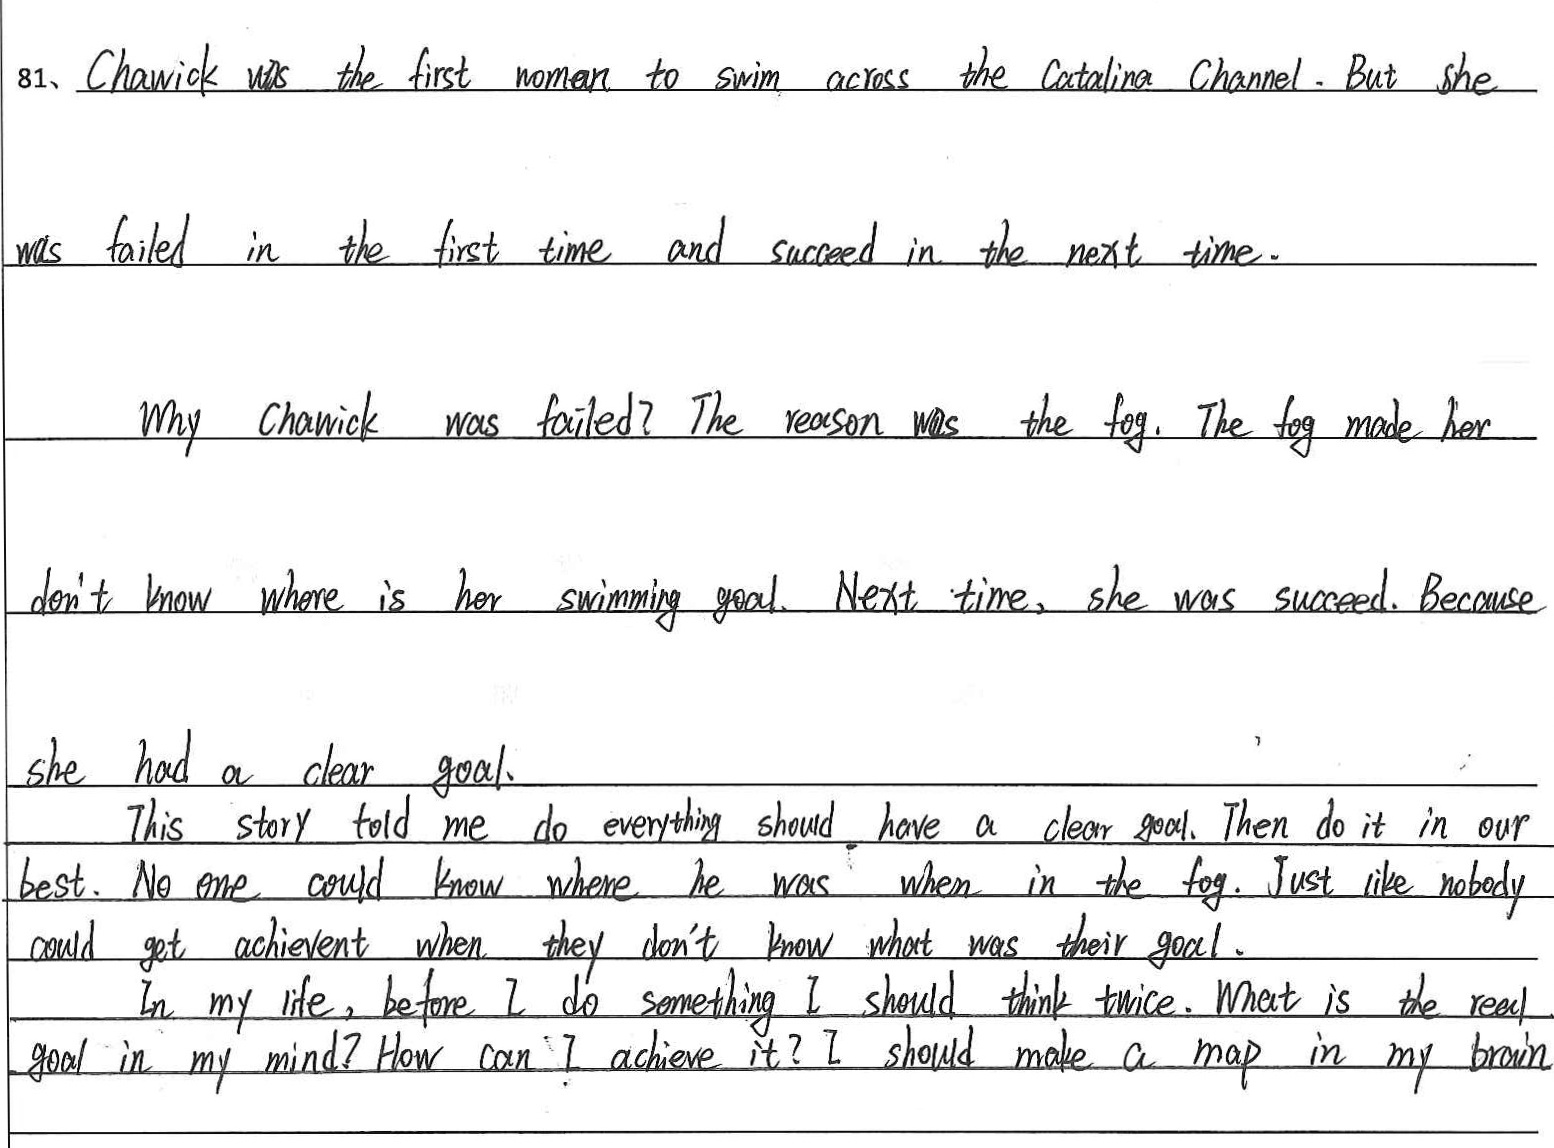 81、Chawick was the first woman to swim across the Catalina Channel. But she
was failed in the first time and succeed in the next time.
Why Chawick was failed? The reason was the fog. The fog made her
don't know where is her swimming goal. Next time, she was succeed. Because
she had a clear goal.
This story told me do everything should have a clear goal. Then do it in our
best. No one could know where he was when in the fog. Just like nobody
could get achievent when they don't know what was their goal.
In my life, before I do something I should think twice. What is the real
goal in my mind? How can I achieve it? I should make a map in my brain